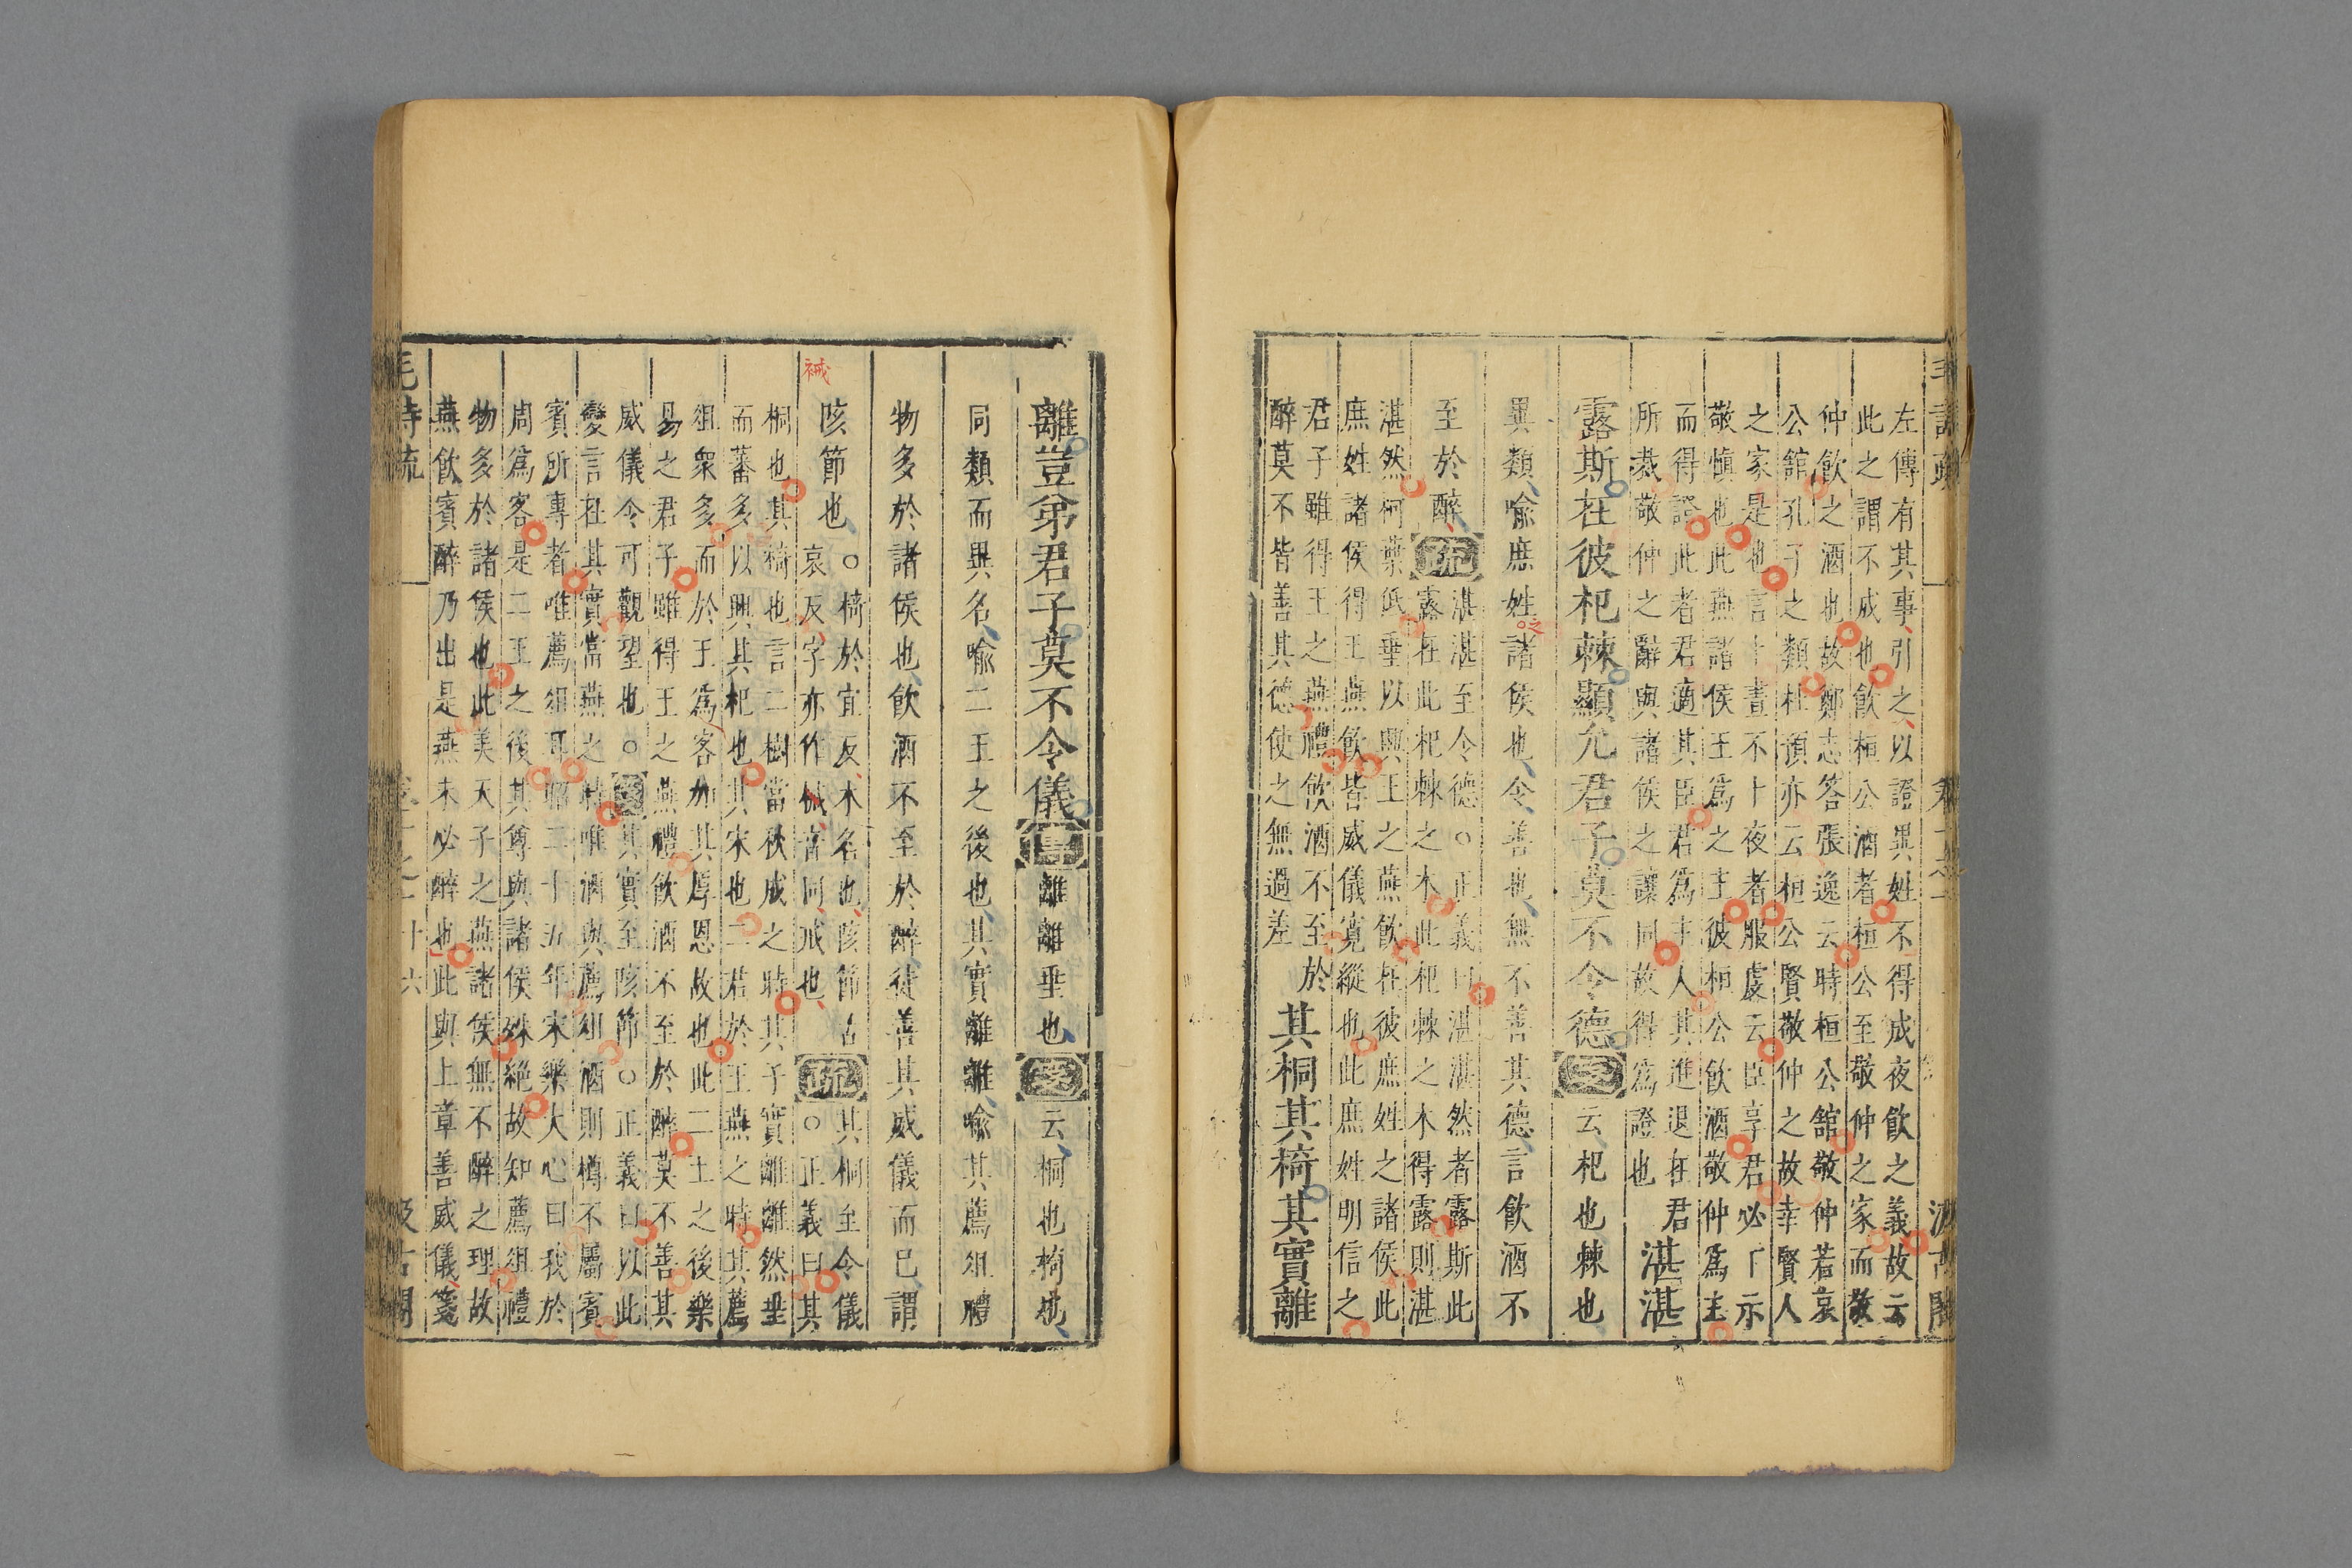 左傳有其事引之以證異姓不得成夜飲之義故云
此之謂不成也飲桓公酒者桓公至敬仲之家而敬
仲飲之酒也故鄭志答張逸云時桓公館敬仲若哀
公館孔子之類杜預亦云桓公賢敬仲之故幸賢人
之家是也言十晝不十夜者服虔云臣享君必示
敬慎也此燕諸侯王為之主彼桓公飲酒敬仲為主
而得證此者君適其臣君為主人其進退在君
所裁敬仲之辭與諸侯之讓同故得為證也
湛湛
露斯在彼杞棘顯允君子莫不令德
云杞也棘也
異類喻庶姓諸侯也令善也無不善其德言飲酒不
至於醉
疏
湛湛至令德○正義曰湛湛然者露斯此
露在此杞棘之木此杞棘之木得露則湛
湛然柯葉低垂以興王之燕飲在彼庶姓之諸侯此
庶姓諸侯得王燕飲皆威儀寬縱也此庶姓明信之
君子雖得王之燕禮飲酒不至於
醉莫不皆善其德使之無過差
其桐其椅其實離
離豈弟君子莫不令儀
離離垂也
云桐也椅也
同類而異名喻二王之後也其實離離喻其薦俎禮
物多於諸侯也飲酒不至於醉徒善其威儀而已謂
陔節也
○椅於宜反木名也陔節古
哀反字亦作械音同戒也
疏
其桐至令儀
○正義曰其
桐也其椅也言二樹當秋成之時其子實離離然垂
而蕃多以興其杞也其宋也二君於王燕之時其薦
俎眾多而於王為客加其厚恩故也此二王之後樂
易之君子雖得王之燕禮飲酒不至於醉莫不善其
威儀令可觀望也○
其實至陔節○正義曰以此
變言在其實當燕之時唯酒與薦俎酒則樽不屬賓
賓所專者唯薦俎耳昭二十五年宋樂大心曰我於
周為客是二王之後其尊與諸侯殊絕故知薦俎禮
物多於諸侯也此美天子之燕諸侯無不醉之理故
燕飲賓醉乃出是燕未必醉也此與上章善威儀箋
毛詩疏
十六
汲古閣
祴